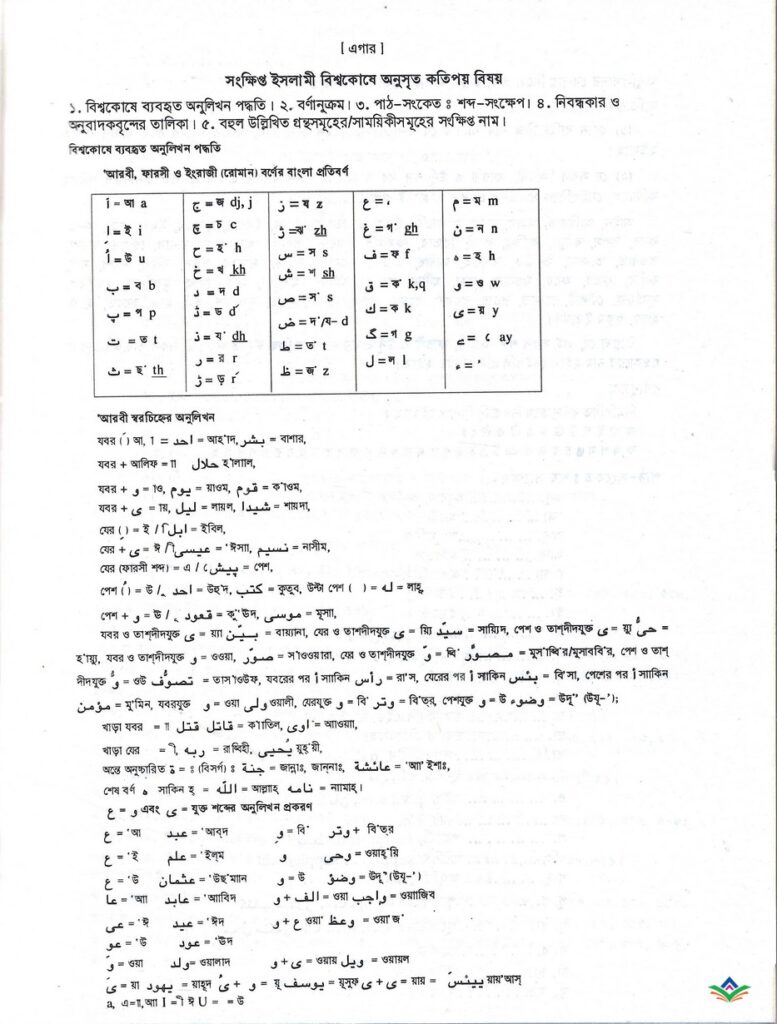 [ এগার ]
সংক্ষিপ্ত ইসলামী বিশ্বকোষে অনুসৃত কতিপয় বিষয়
১. বিশ্বকোষে ব্যবহৃত অনুলিখন পদ্ধতি। ২. বর্ণানুক্রম। ৩. পাঠ-সংকেত ঃ শব্দ-সংক্ষেপ। ৪. নিবন্ধকার ও
অনুবাদকবৃন্দের তালিকা। ৫. বহুল উল্লিখিত গ্রন্থসমূহের/সাময়িকীসমূহের সংক্ষিপ্ত নাম।
বিশ্বকোষে ব্যবহৃত অনুলিখন পদ্ধতি
'আরবী, ফারসী ও ইংরাজী (রোমান) বর্ণের বাংলা প্রতিবর্ণ
أ = আ a
ا = ই i
أُ = উ u
ب = ব b
پ = প p
ت = ত t
ث = ছ' th
ج = জ dj, j
چ = চ c
ح = হ' h
خ = খ kh
د = দ d
ڈ = ড d'
ذ = য' dh
ر = র r
ڑ = ড় r'
ز = য z
ژ = ঝ' zh
س = স s
ش = শ sh
ص = স' s
ض = দ'/য- d
ط = ত' t
ظ = জ' z
ع = ،
غ = গ' gh
ف = ফ f
ق = ক' k,q
ك = ক k
گ = গ g
ل = ল l
م = ম m
ن = ন n
ه = হ h
و = ও w
ى = য় y
ے = ে ay
ء = '
'আরবী স্বরচিহ্নের অনুলিখন
যবর () আ, া = احد = আহ'াদ, بشر = বাশার,
যবর + আলিফ = াা حلال হ'ালাাল,
যবর + و = াও, يوم = য়াওম, قوم = ক'াওম,
যবর + ى = ায়, ليل = লায়ল, شيدا = শায়দা,
যের () = ই / ি ابل = ইবিল,
যের + ى = ঈ / ী عيسى = 'ঈসাা, نسيم = নাসীম,
যের (ফারসী শব্দ) = এ / ে پيش = পেশ,
পেশ () = উ / ু احد = উহ'দ, كتب = কুতুব, উল্টা পেশ ( ) = له = লাহূ,
পেশ + و = ঊ / ূ قعود = কু'ঊদ, موسى = মূসাা,
যবর ও তাশ্দীদযুক্ত ى = য়্যা بيّن = বায়্যানা, যের ও তাশ্দীদযুক্ত ى = য়্যি سيّد = সায়্যিদ, পেশ ও তাশ্দীদযুক্ত ى = য়্যু حىُّ =
হ'ায়্যু, যবর ও তাশ্দীদযুক্ত و = ওওয়া, صوّر = স'াওওয়ারা, যের ও তাশ্দীদযুক্ত وّ = ব্বি' مصوّر = মুস'াব্বি'র/মুসাববি'র, পেশ ও তাশ্
দীদযুক্ত وُّ = ওউ تصوُّف = তাস'াওউফ, যবরের পর أ সাাকিন رأس = রা'স, যেরের পর أ সাাকিন بئس = বি'সা, পেশের পর أ সাাকিন
مؤمن = মু'মিন, যবরযুক্ত و = ওয়া ولى ওয়ালী, যেরযুক্ত و = বি' وتر = বি'ত্র, পেশযুক্ত و = উ وضوء = উদূ' (উযূ-');
খাড়া যবর = াা قاتل قتل = ক'াাতিল, اوى = আাওয়াা,
খাড়া যের = ী, ربه = রাব্বিহী, يُحيى য়ুহ'য়ী,
অন্তে অনুচ্চারিত ة = ঃ (বিসর্গ) ঃ جنة = জান্নাঃ, জান্‌নাঃ, عائشة = 'আাইশাঃ,
শেষ বর্ণ ه সাকিন হ্ = الله = আল্লাাহ্ نامه = নাামাহ্।
ع ও و এবং ى = যুক্ত শব্দের অনুলিখন প্রকরণ
ع = 'আ عبد = 'আব্দ و = বি' وتر + বি'ত্র
ع = 'ই علم = 'ইল্ম و وحى = ওয়াহ্'য়ি
ع = 'উ عثمان = 'উছ'মাান و = উ وضؤ = উদূ' (উযূ-')
عا = 'আা عابد = 'আাবিদ و + الف = ওয়াা واجب = ওয়াাজিব
عى = 'ঈ عيد = 'ঈদ و + ع ওয়া' وعظ = ওয়া'জ'
عو = 'ঊ عود = 'ঊদ
و = ওয়া ولد = ওয়ালাদ و + ى = ওয়ায় ويل = ওয়ায়ল
ى = য়া يهود = য়াহূদ ى + و = য়ূ يوسف = য়ূসুফ ى + ى = য়ায় يينس = য়ায়'আস্
a, এ=া, াা I = ী ঈ U = = ঊ